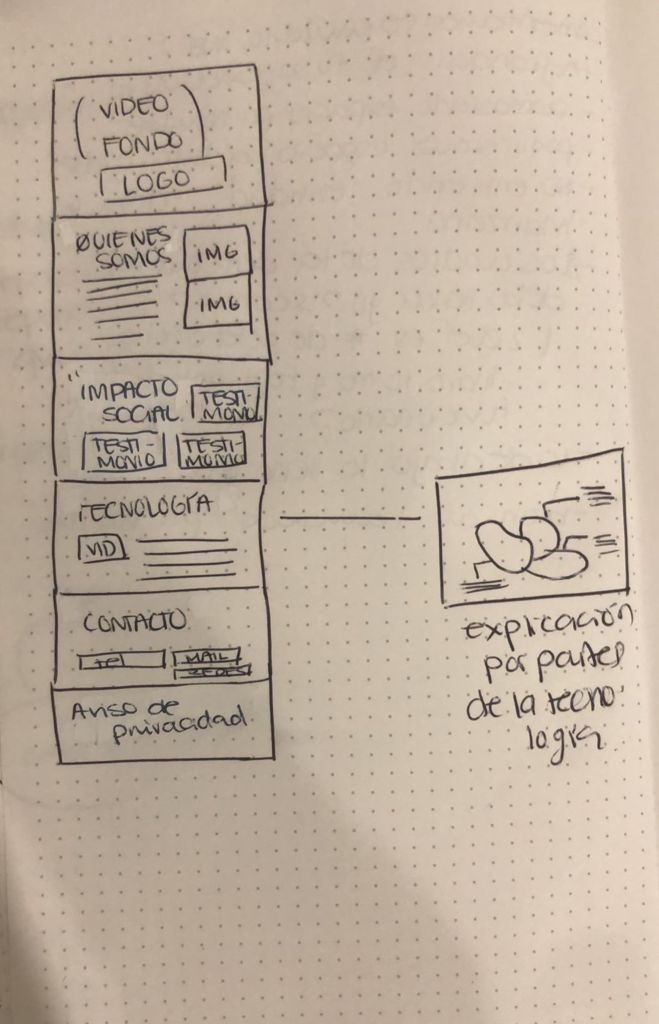 (VIDEO
FONDO)
LOGO
QUIENES
SOMOS
IMG
IMG
"IMPACTO
SOCIAL
TESTI-
MONIO
TESTI-
MONIO
TESTI-
MONIO
TECNOLOGÍA
VID
CONTACTO
tel
MAIL
REDES
Aviso de
privacidad
explicación
por partes
de la tecno-
logía